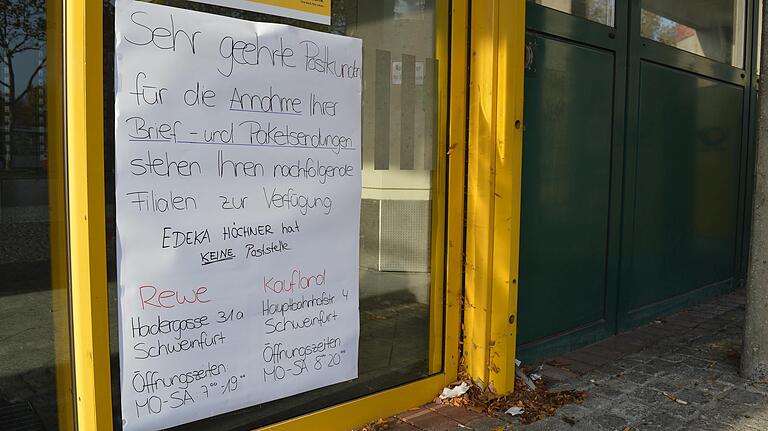 Sehr geehrte Postkunden
für die Annahme Ihrer
Brief - und Paketsendungen
stehen Ihnen nachfolgende
Filialen zur Verfügung
EDEKA HÖCHNER hat
KEINE Poststelle
Rewe
Hadergasse 31a
Schweinfurt
Öffnungszeiten
MO-SA: 7⁰⁰-19⁰⁰
Kaufland
Hauptbahnhofstr 4
Schweinfurt
Öffnungszeiten
MO-SA 8-20⁰⁰